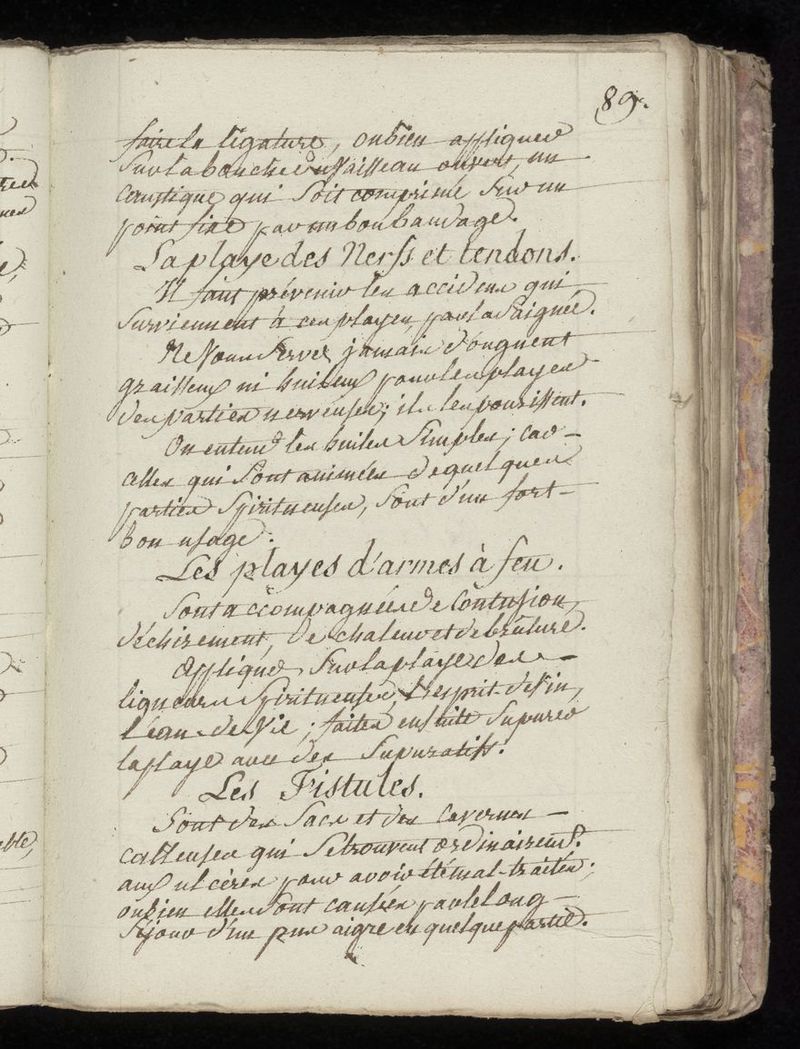 89.
faire la ligature, oubien appliquer
sur la bouche du vaisseau ouvert, un
caustique qui soit comprimé sur un
point fixe par un bon bandage.
La playe des Nerfs et tendons.
Il faut prévenir les accidens qui
surviennent à ces playes, par la saignée.
Ne vous servez jamais d'onguent
graisseux ni huileux pour les playes
des parties nerveuses; ils les pourissent.
On entend les huiles simples; car
celles qui sont animées de quelques
parties spiritueuses, sont d'un fort
bon usage.
Les playes d'armes à feu.
Sont accompagnées de Contusion,
déchirement, de chaleur et de brûlure.
Appliqués sur la playe des
liqueurs spiritueuses, l'esprit-de-vin,
l'eau-de-vie; faites ensuite supurer
la playe avec des supuratifs.
Les Fistules.
Sont des sacs et des cavernes
calleuses qui se trouvent ordinairemt.
aux ulcères pour avoir été mal-traités;
oubien elles sont causées par le long
séjour d'un pus aigre en quelque partie.